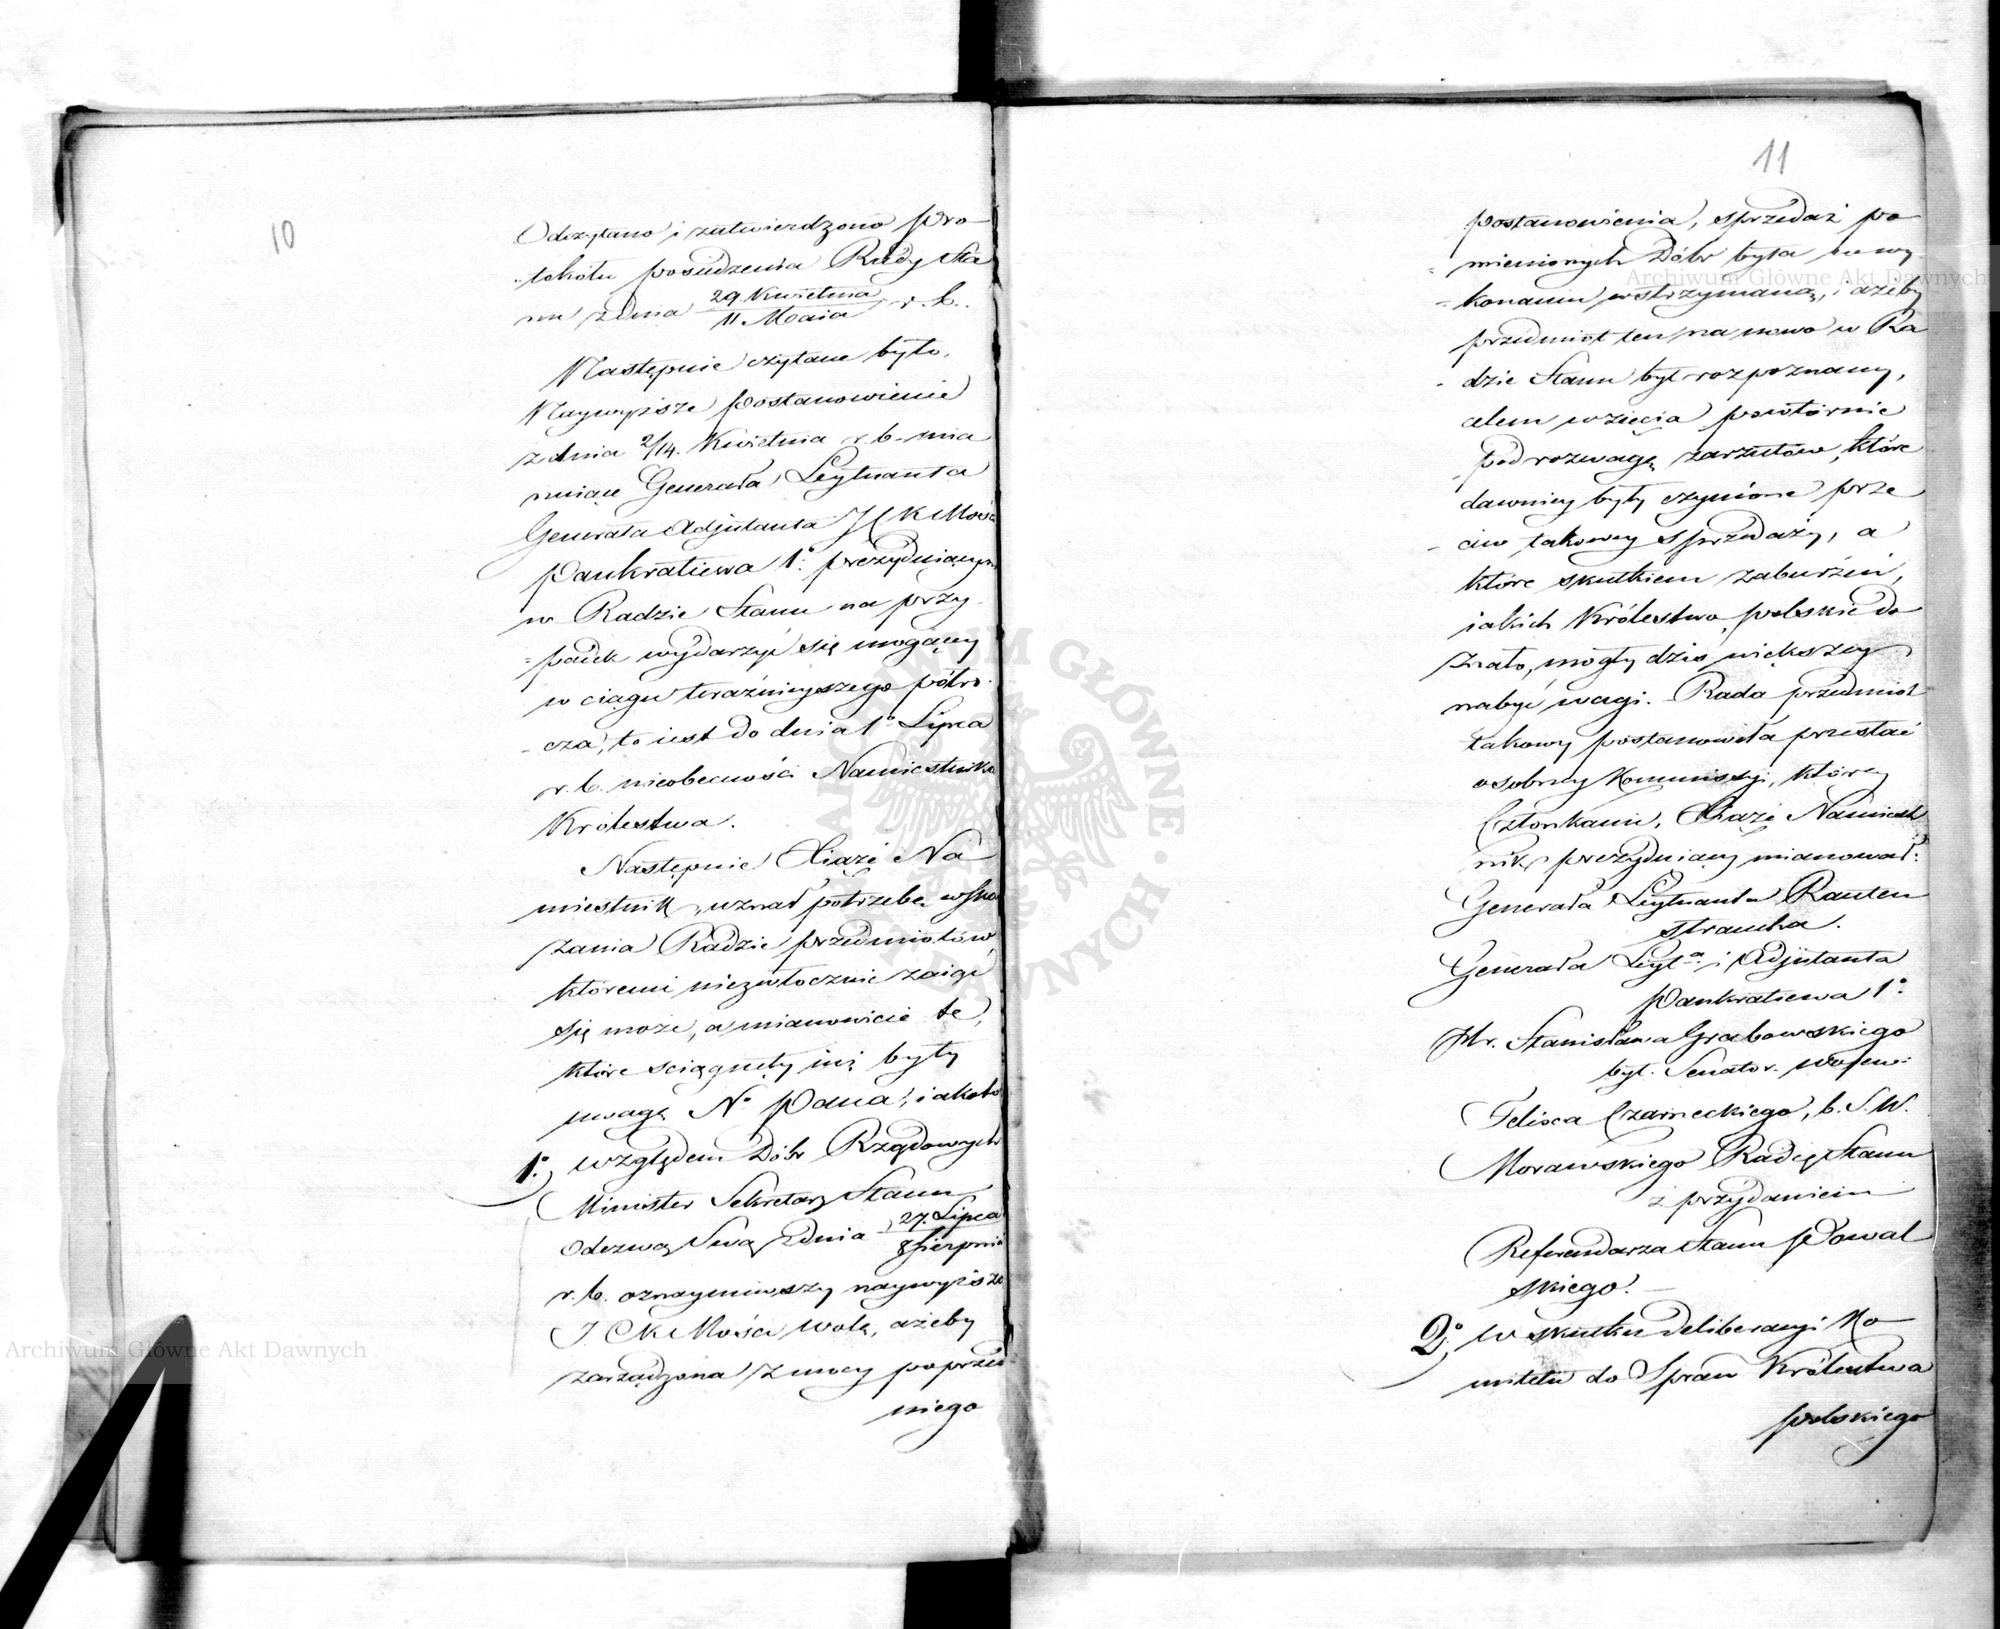 10
Odczytano i zatwierdzono pro-
-tokółu posiedzenia Rady Sta
nu z dnia 29 Kwietnia / 11 Maia r. b.
Następnie czytane było,
Naywyższe postanowienie
z dnia 2/14. Kwietnia r. b. mia
nuiące Generała Leytnanta
Generała Adjutanta JCKMości
Pankratiewa 1º. prezyduiącym
w Radzie Stanu na przy-
=padek wydarzyć się mogącey
w ciągu teraźnieyszego półro-
-cza, to iest do dnia 1º Lipca
r. b. nieobecności Namiestnika
Królestwa.
Następnie Xiąże Na
miestnik, uznał potrzebę wska
zania Radzie przedmiotów,
któremi niezwłocznie zaiąć
się może, a mianowicie te,
które sciągnęły iuż były
uwagę Nº Pana, iakoto
1º. względem Dóbr Rządowych
Minister Sekretarz Stanu
Odezwą Swą z dnia 27. Lipca / 8 Sierpnia
r. b. oznaymiwszy naywyższe
J C K Mości wolę, ażeby
zarządzona z mocy poprzed-
niego
11
postanowienia, sprzedaż po
=mienionych Dóbr była w wy-
-konaniu wstrzymaną, i ażeby
przedmiot ten na nowo w Ra
-dzie Stanu był rozpoznany,
celem wzięcia powtórnie
pod rozwagę zarzutów, które
dawniey były czynione prze
-ciw takowey sprzedaży, a
które skutkiem zaburzeń,
iakich Królestwo polskie do
znało, mogły dziś większey
nabyć wagi. Rada przedmiot
takowy postanowiła przesłać
osobney Kommissyi, którey
Członkami, Xiąże Namiest
nik prezyduiący mianował:
Generała Leytnanta Rauten
straucha.
Generała Leyt.ª i Adjutanta
Pankratiewa 1º.
Hr. Stanisława Grabowskiego
był. Senator. Wojew:
Felixa Czarneckiego, b. S. W.
Morawskiego Radcę Stanu
z przydaniem
Referendarza Stanu Powal
skiego. —
2º. W skutku deliberacyi Ko-
mitetu do Spraw Królestwa
polskiego
Archiwum Główne Akt Dawnych
Archiwum Główne Akt Dawnych
ARCHIWUM GŁÓWNE AKT DAWNYCH